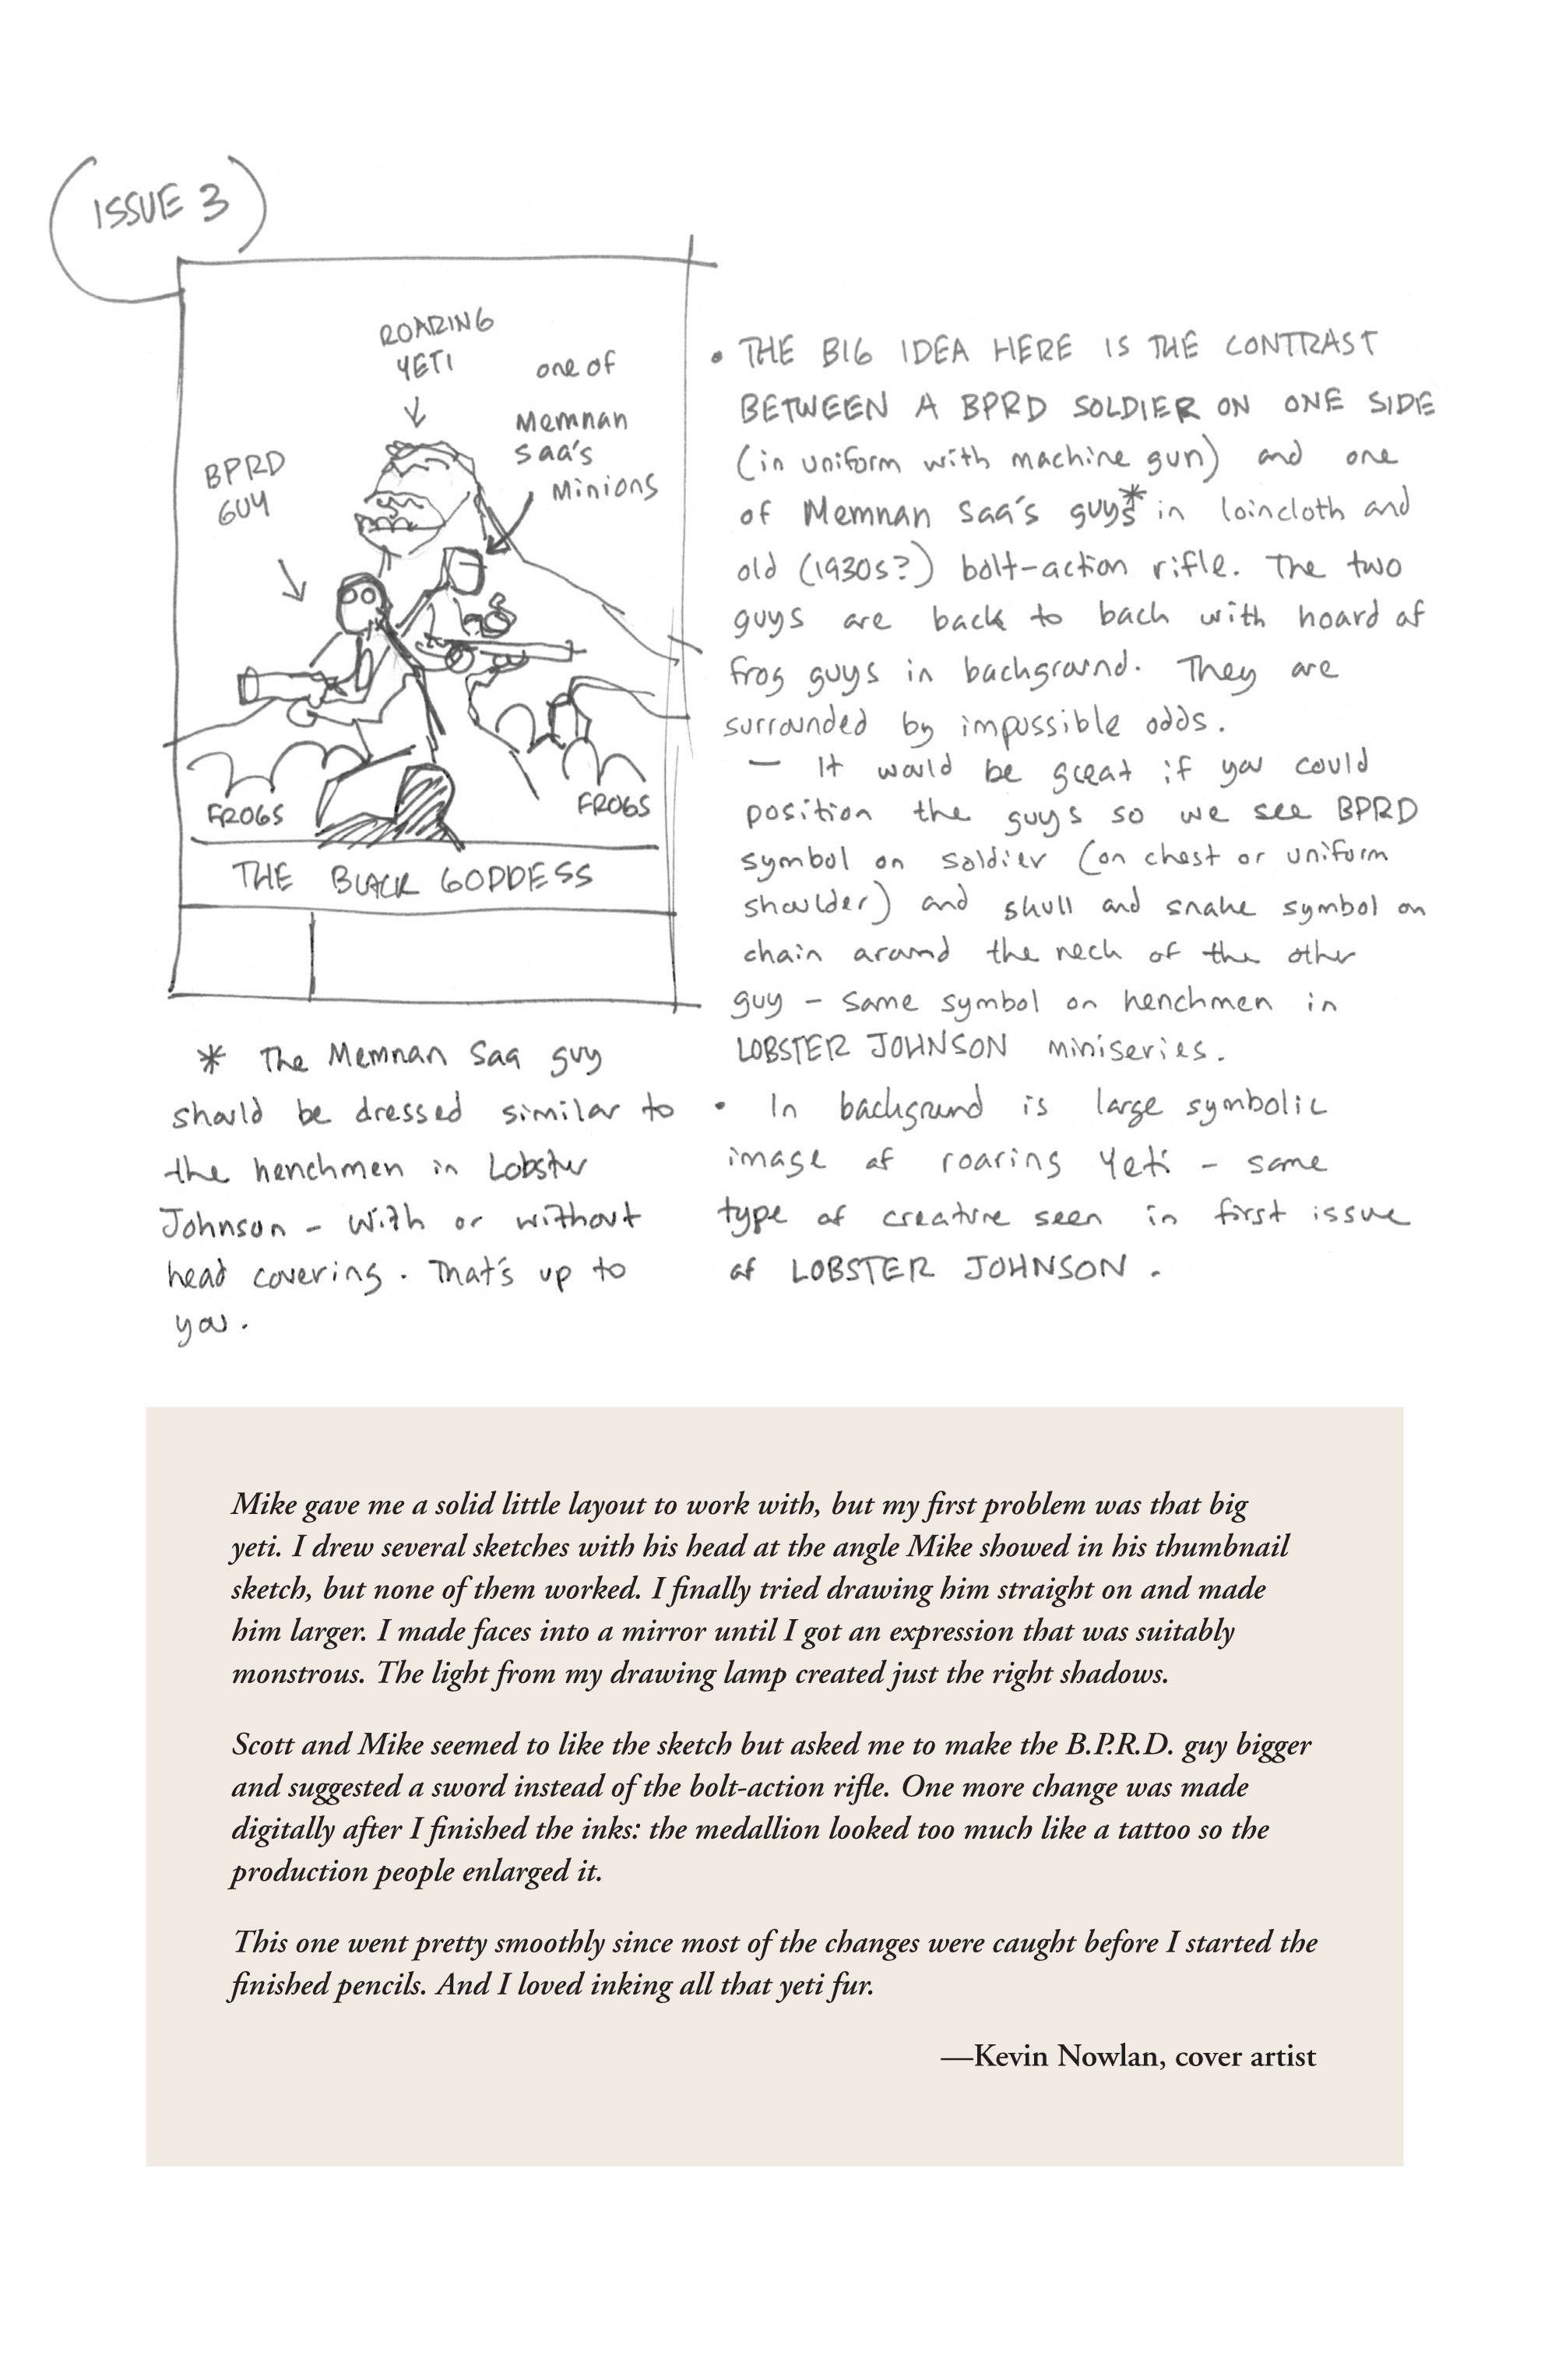 ISSUE 3
ROARING
YETI
one of
Memnan
Saa's
Minions
BPRD
GUY
FROGS
FROGS
THE BLACK GODDESS
* The Memnan Saa guy
should be dressed similar to
the henchmen in Lobster
Johnson - With or without
head covering. That's up to
you.
• THE BIG IDEA HERE IS THE CONTRAST
BETWEEN A BPRD SOLDIER ON ONE SIDE
(in uniform with machine gun) and one
of Memnan Saa's guys* in loincloth and
old (1930s?) bolt-action rifle. The two
guys are back to back with hoard of
frog guys in background. They are
surrounded by impossible odds.
— It would be great if you could
position the guys so we see BPRD
symbol on soldier (on chest or uniform
shoulder) and skull and snake symbol on
chain around the neck of the other
guy - same symbol on henchmen in
LOBSTER JOHNSON miniseries.
• In background is large symbolic
image of roaring Yeti - same
type of creature seen in first issue
of LOBSTER JOHNSON.
Mike gave me a solid little layout to work with, but my first problem was that big
yeti. I drew several sketches with his head at the angle Mike showed in his thumbnail
sketch, but none of them worked. I finally tried drawing him straight on and made
him larger. I made faces into a mirror until I got an expression that was suitably
monstrous. The light from my drawing lamp created just the right shadows.
Scott and Mike seemed to like the sketch but asked me to make the B.P.R.D. guy bigger
and suggested a sword instead of the bolt-action rifle. One more change was made
digitally after I finished the inks: the medallion looked too much like a tattoo so the
production people enlarged it.
This one went pretty smoothly since most of the changes were caught before I started the
finished pencils. And I loved inking all that yeti fur.
—Kevin Nowlan, cover artist